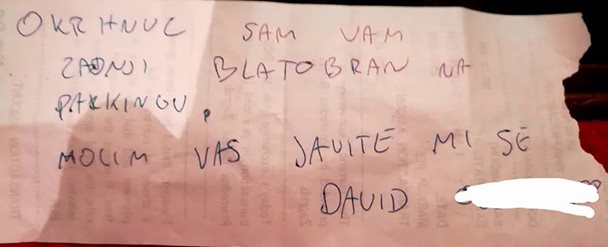 OKRHNUL SAM VAM
ZADNJI BLATOBRAN NA
PARKINGU.
MOLIM VAS JAVITE MI SE
DAVID